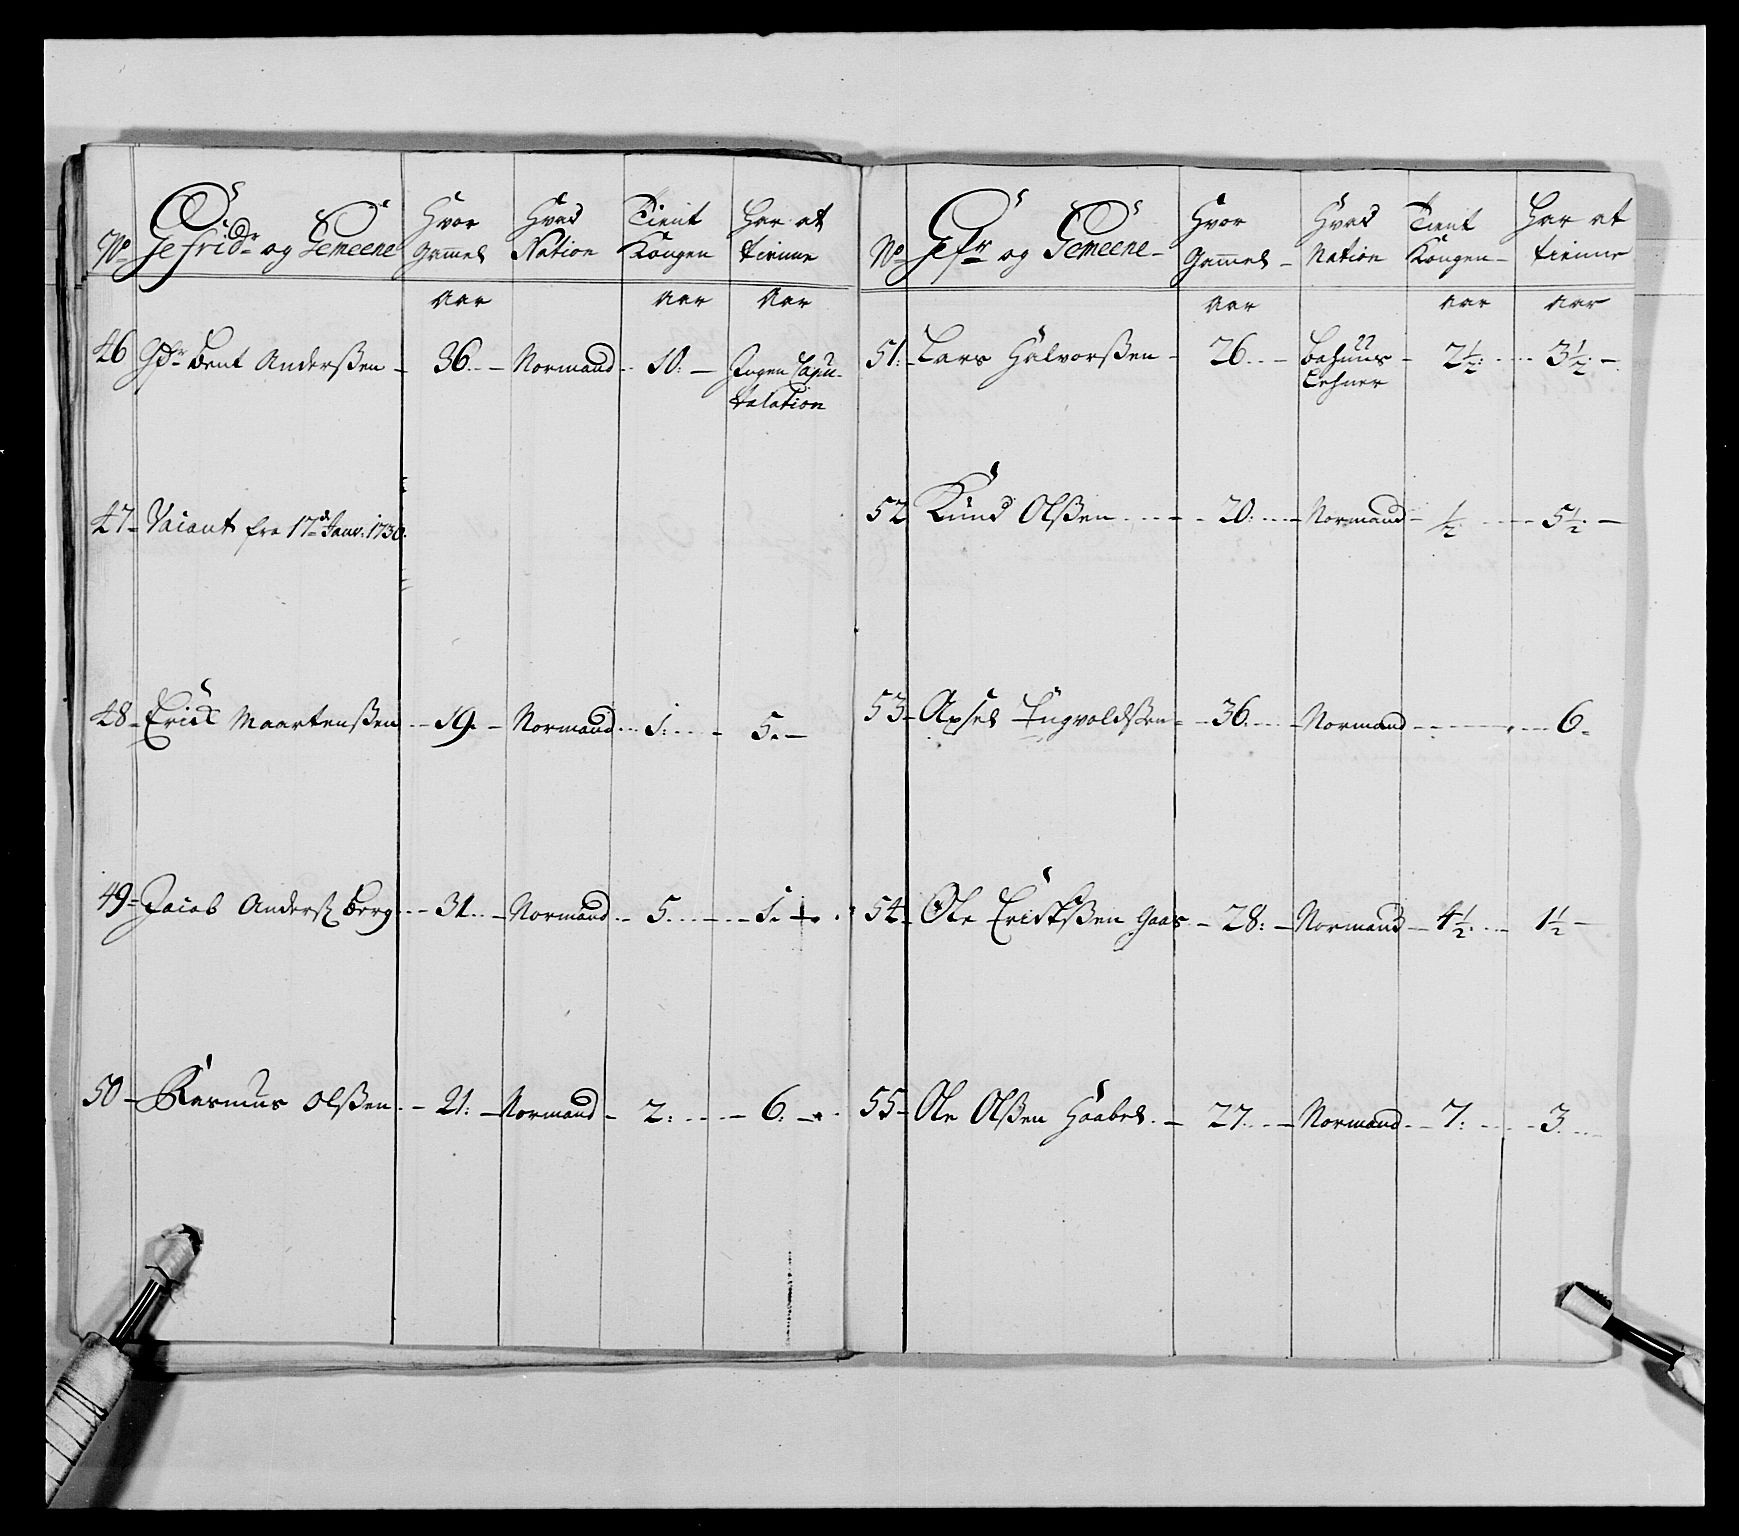 No Gefridr og Gemeene Hvor Gammel Hvad Nation Tient Kongen Har at tienne
Aar Aar Aar
46 Gfr Bent Anderßen - 36 - Normand 10: - Ingen Capu-
tulation
47 - Vacant fra 17d Janv: 1730.
48 - Erick Maartenßen - 19. - Normand 1: - 5. -
49 - Jacob Anderß Berg - 31 - Normand 5. - 1. -
50 - Rasmus Olßen - 21: - Normand - 2: - 6. -
No Gefr og Gemeene - Hvor Gammel - Hvad Nation Tient Kongen - Har at tienne
Aar Aar Aar
51: Lars Halvorßen - 26 - Bahuus - 2 1/2: - 3 1/2: -
Lehner
52 Knud Olßen - 20: - Normand - 1/2 - 5 1/2: -
53 - Axsel Ingvoldßen - 36. - Normand - 6.
54 - Ole Erickßen Gaas - 28: - Normand - 4 1/2: - 1 1/2 -
55 - Ole Olßen Haabel. - 27. - Normand - 7: - 3.